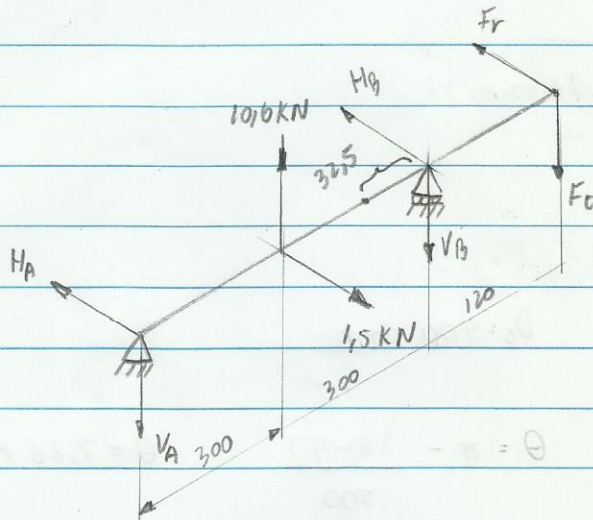 Fr
HB
10,6KN
32,5
Ft
HA
VB
1,5KN
120
300
VA
300